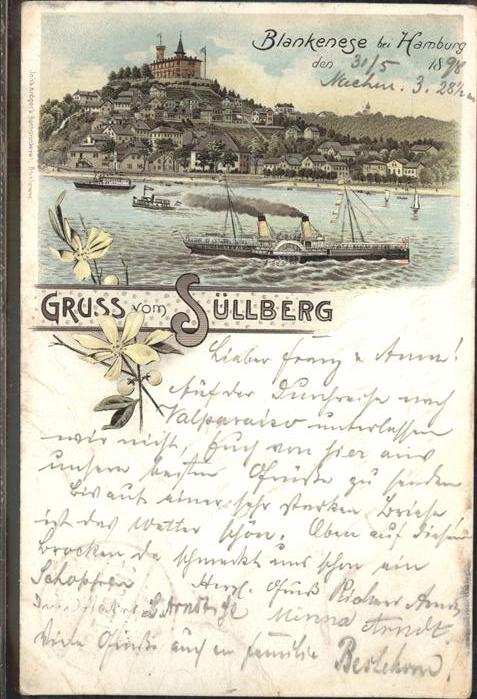 Blankenese bei Hamburg
den 31/5 1898
Nachm. 3. 28½
GRUSS vom SÜLLBERG
Lieber Franz & Anna!
Auf der Durchreise nach
Valparaiso unterlassen
wir nicht, Euch von hier aus
unsere besten Grüße zu senden
Bis auf einer sehr starken Briese
ist das Wetter schön. Oben auf diesem
Brocken, da schmeckt uns schon ein
Schoppen Herzl. Gruß Richard Arndt
Minna Arndt
Viele Grüße auch an Familie